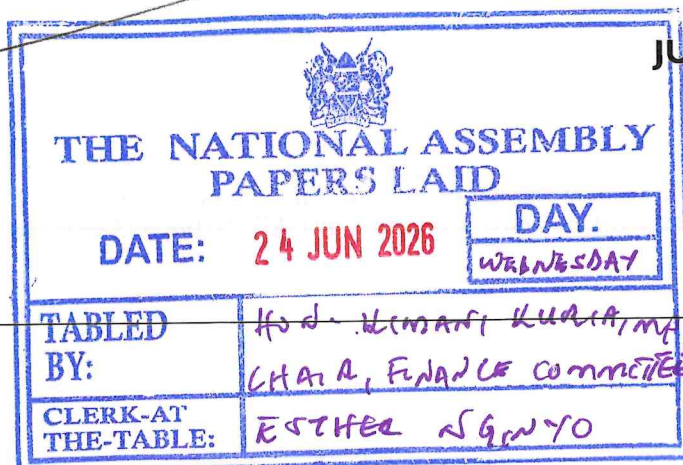 JU
THE NATIONAL ASSEMBLY
PAPERS LAID
DATE: 24 JUN 2026
DAY.
WEDNESDAY
TABLED BY:
HON. KIMANI KURIA, MP
CHAIR, FINANCE COMMITTEE
CLERK-AT THE-TABLE:
ESTHER NGINYO